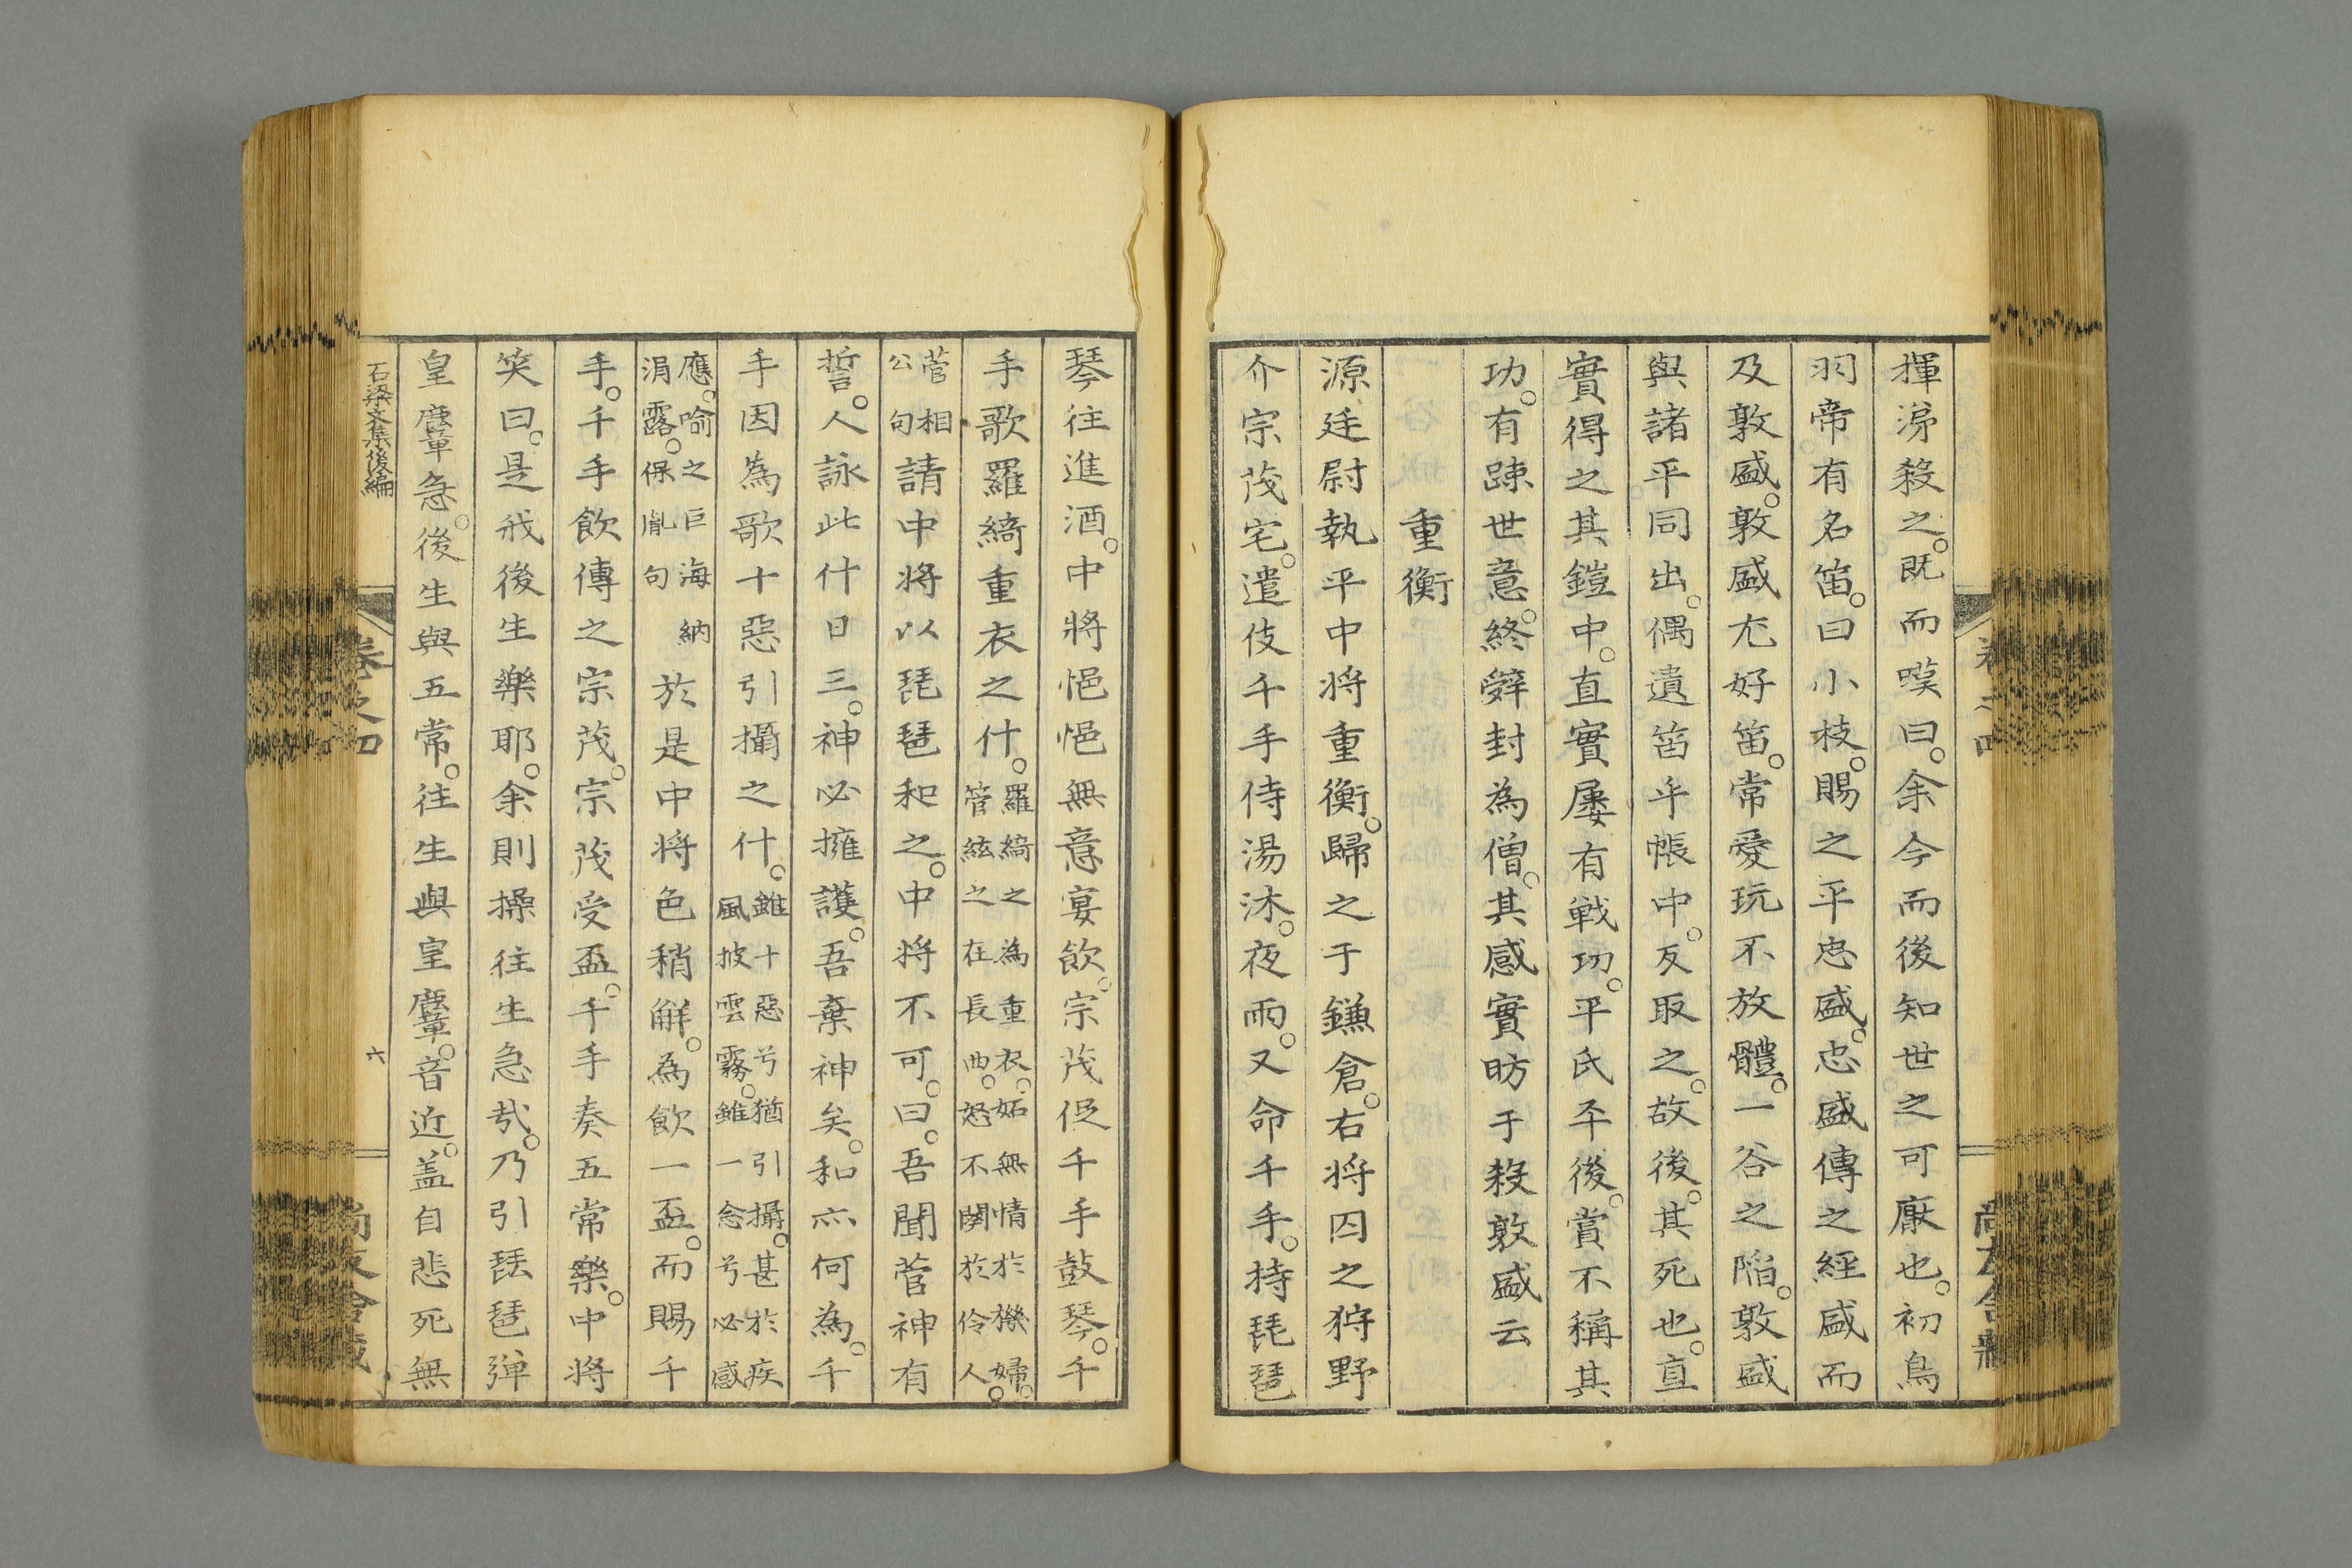 揮涕殺之。既而嘆曰。余今而後知世之可厭也。初鳥
羽帝有名笛。曰小枝。賜之平忠盛。忠盛傳之經盛而
及敦盛。敦盛尤好笛。常愛玩不放體。一谷之陷。敦盛
與諸平同出。偶遺笛乎帳中。反取之。故後。其死也。直
實得之其鎧中。直實屢有戰功。平氏平後。賞不稱其
功。有踈世意。終辤封為僧。其感實昉于殺敦盛云
重衡
源廷尉執平中將重衡。歸之于鎌倉。右將囚之狩野
介宗茂宅。遣伎千手侍湯沐。夜雨。又命千手。持琵琶
琴往進酒。中將悒悒無意宴飲。宗茂促千手鼓琴。千
手歌羅綺重衣之什。羅綺之為重衣。妬無情於機婦。
管絃之在長曲。怒不闋於伶人。
菅相
公句
請中將以琵琶和之。中將不可。曰。吾聞菅神有
誓。人詠此什日三。神必擁護。吾棄神矣。和亦何為。千
手因為歌十惡引攝之什。雖十惡兮猶引攝。甚於疾
風披雲霧。雖一念兮必感
應。喻之巨海納
涓露。保胤句
於是中將色稍解。為飲一盃。而賜千
手。千手飲傳之宗茂。宗茂受盃。千手奏五常樂。中將
笑曰。是我後生樂耶。余則操往生急哉。乃引琵琶彈
皇麞急。後生與五常。往生與皇麞。音近。盖自悲死無
石梁文集後編
卷之四
六
尚友舍藏